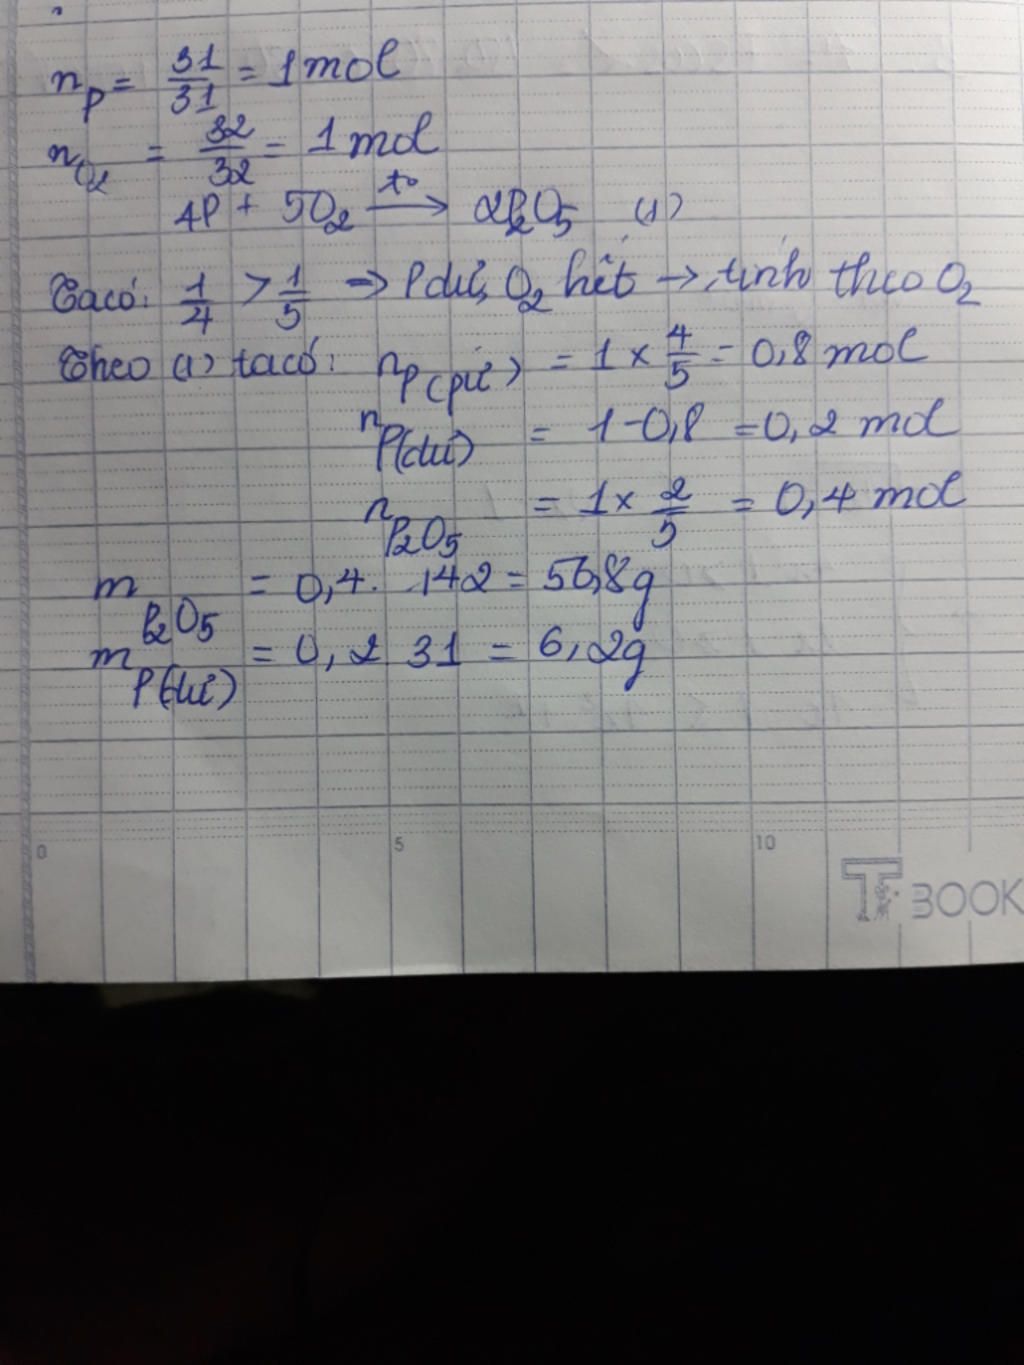 n_P = 31/31 = 1 mol
n_O2 = 32/32 = 1 mol
4P + 5O2 —t°→ 2P2O5 (1)
Ta có: 1/4 > 1/5 => P dư, O2 hết → tính theo O2
Theo (1) ta có: n_P(pư) = 1 × 4/5 = 0,8 mol
n_P(dư) = 1 - 0,8 = 0,2 mol
n_P2O5 = 1 × 2/5 = 0,4 mol
m_P2O5 = 0,4 . 142 = 56,8g
m_P(dư) = 0,2 31 = 6,2g
0 5 10
T BOOK